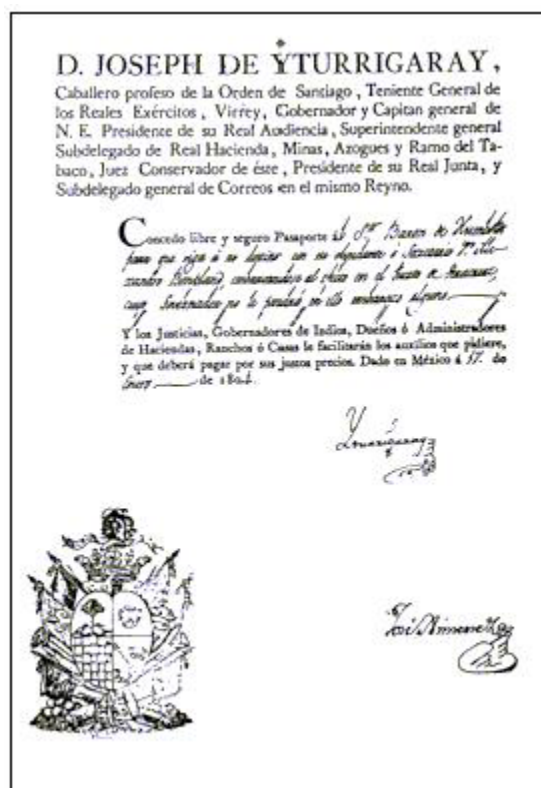 D. JOSEPH DE YTURRIGARAY,
Caballero profeso de la Orden de Santiago, Teniente General de
los Reales Exércitos, Virrey, Gobernador y Capitan general de
N. E. Presidente de su Real Audiencia, Superintendente general
Subdelegado de Real Hacienda, Minas, Azogues y Ramo del Ta-
baco, Juez Conservador de éste, Presidente de su Real Junta, y
Subdelegado general de Correos en el mismo Reyno.
Concedo libre y seguro Pasaporte al Sor. Baron de Humboldt
para que siga á su destino con su
en el Puerto de
Y los Justicias, Gobernadores de Indios, Dueños ó Administradores
de Haciendas, Ranchos ó Casas le facilitarán los auxilios que pidiere,
y que deberá pagar por sus justos precios. Dado en México á 17. de
Enero de 1804.
Yturrigaray